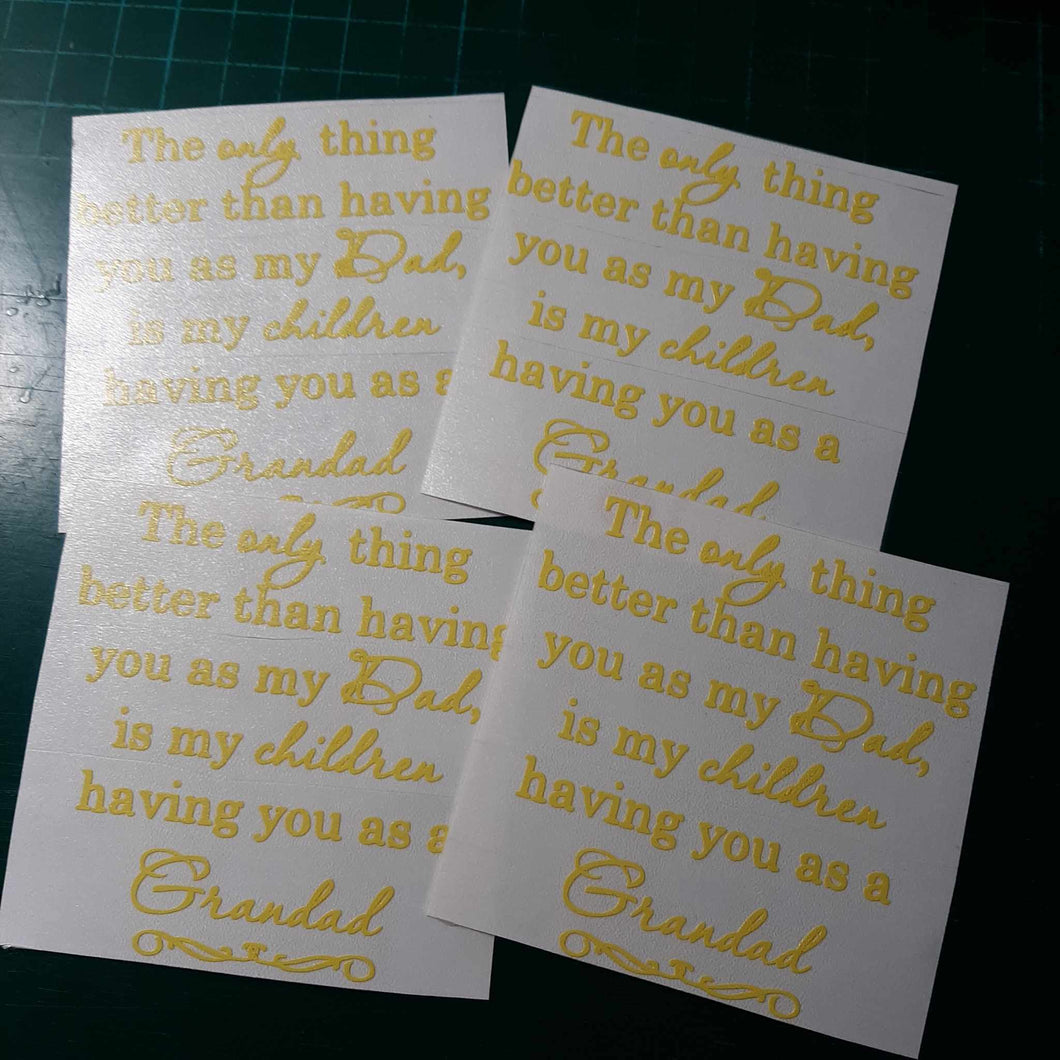 The only thing
better than having
you as my Dad,
is my children
having you as a
Grandad
The only thing
better than having
you as my Dad,
is my children
having you as a
Grandad
The only thing
better than having
you as my Dad,
is my children
having you as a
Grandad
The only thing
better than having
you as my Dad,
is my children
having you as a
Grandad